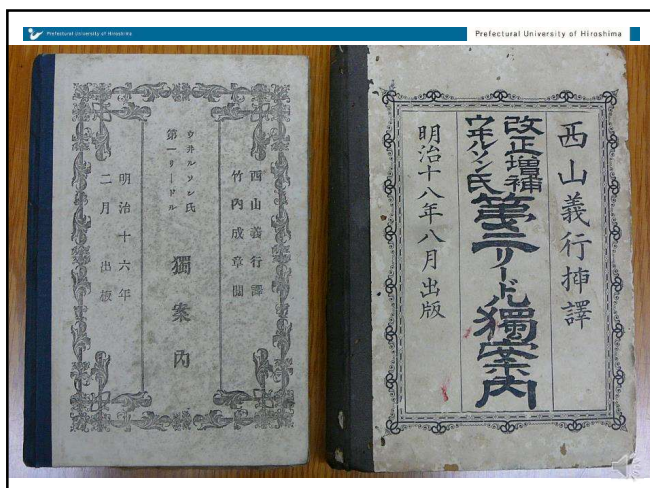 Prefectural University of Hiroshima
Prefectural University of Hiroshima
西山義行譯
竹内成章閲
ウ井ルソン氏
第一リードル
獨案内
明治十六年
二月出板
西山義行挿譯
改正増補
ウ井ルソン氏
第二リードル獨案内
明治十八年八月出版